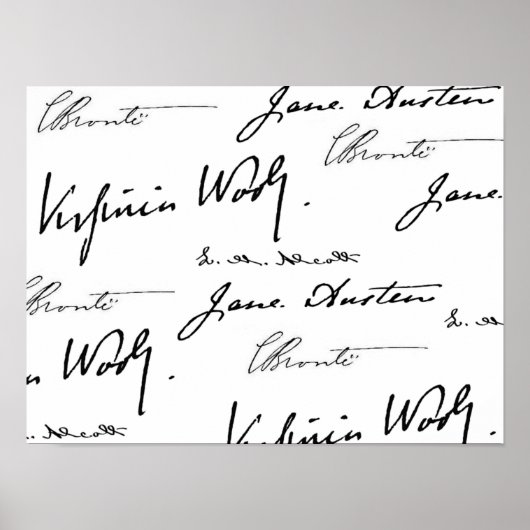 CBrontë
Jane. Austen
CBrontë
Virginia Woolf.
Jane.
L. M. Alcott
CBrontë
Jane. Austen
L. M
Woolf.
CBrontë
L. M. Alcott
Virginia Woolf.